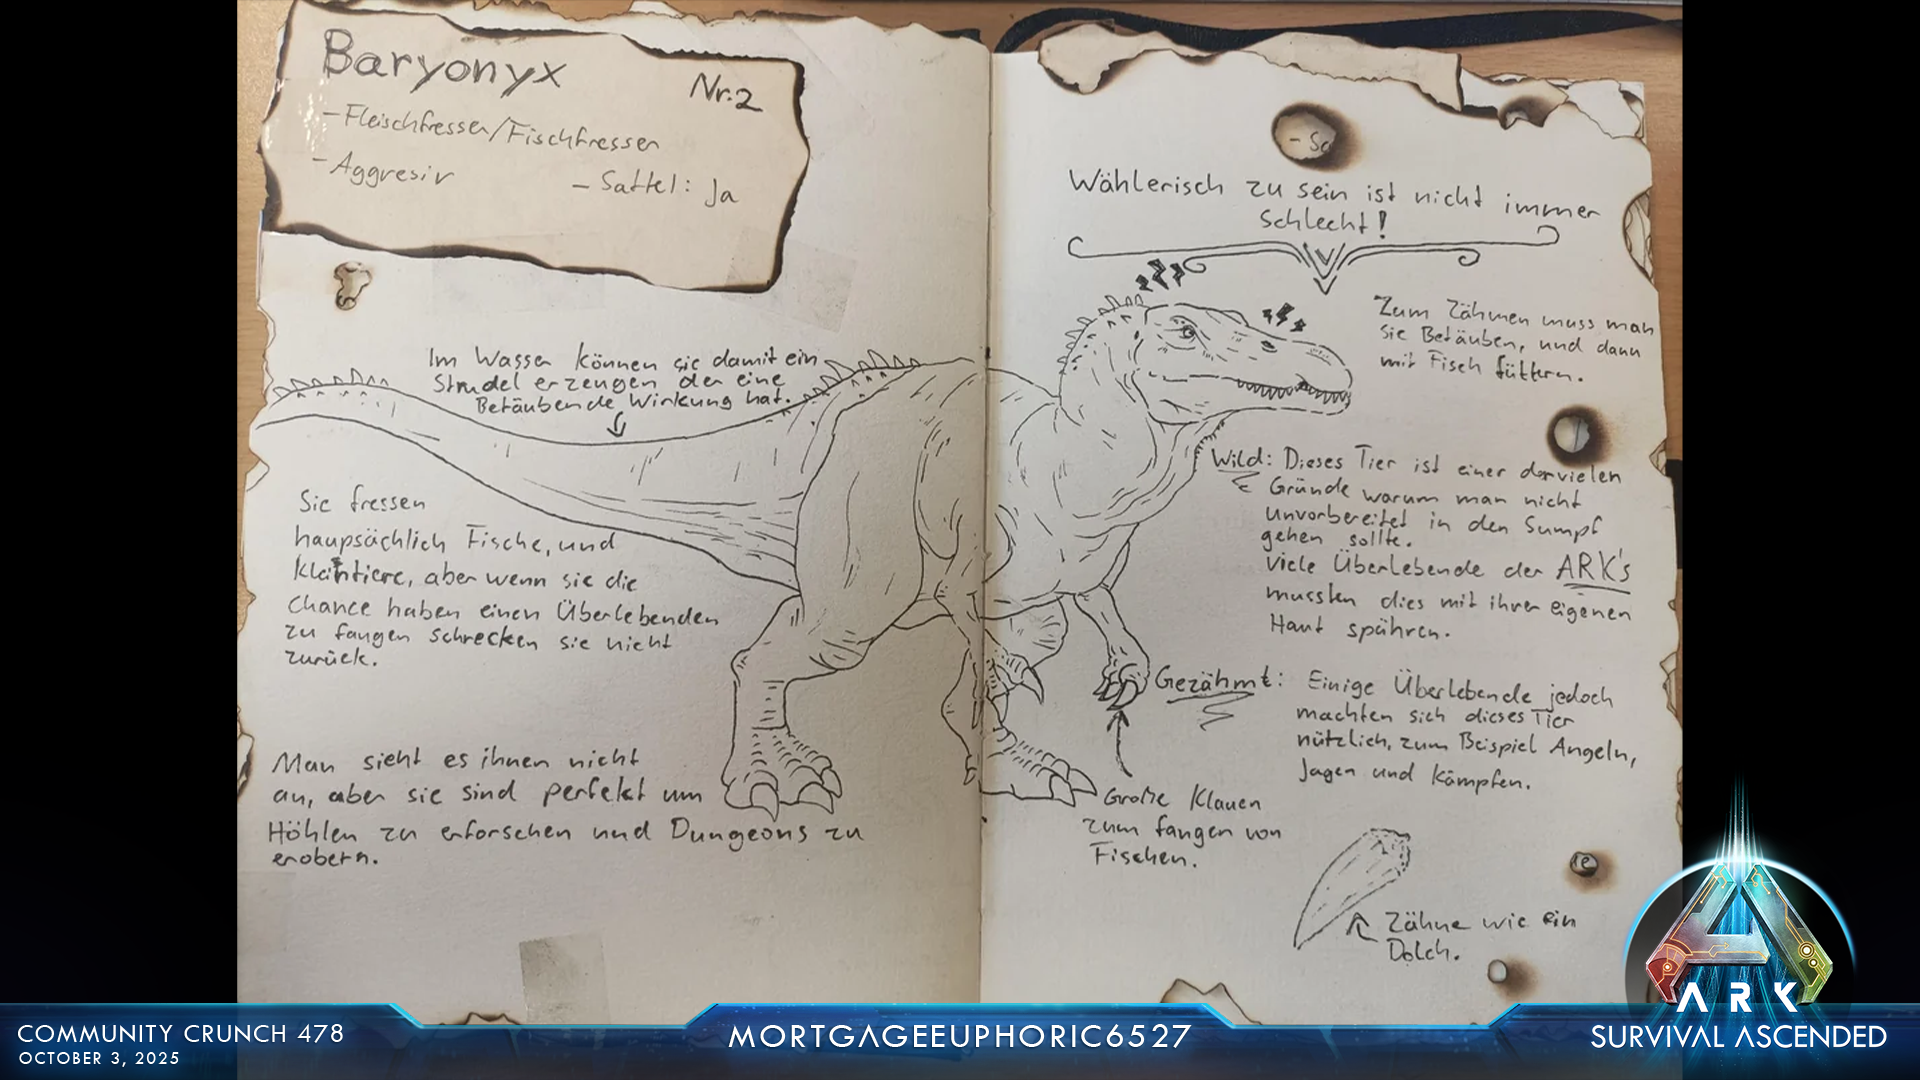 Baryonyx
Nr.2
- Fleischfresser/Fischfresser
- Aggresiv
- Sattel: Ja
Im Wasser können sie damit ein
Strudel erzeugen der eine
Betäubende Wirkung hat.
Sie fressen
haupsächlich Fische, und
Kleintiere, aber wenn sie die
Chance haben einen Überlebenden
zu fangen schrecken sie nicht
zurück.
Man sieht es ihnen nicht
an, aber sie sind perfekt um
Höhlen zu erforschen und Dungeons zu
erobern.
Wählerisch zu sein ist nicht immer
schlecht!
Zum Zähmen muss man
sie Betäuben, und dann
mit Fisch füttern.
Wild: Dieses Tier ist einer der vielen
Gründe warum man nicht
unvorbereitet in den Sumpf
gehen sollte.
Viele Überlebende der ARK's
mussten dies mit ihrer eigenen
Haut spühren.
Gezähmt: Einige Überlebende jedoch
machten sich dieses Tier
nützlich, zum Beispiel Angeln,
Jagen und Kämpfen.
Große Klauen
zum fangen von
Fischen.
Zähne wie ein
Dolch.
COMMUNITY CRUNCH 478
OCTOBER 3, 2025
MORTGAGEEUPHORIC6527
ARK
SURVIVAL ASCENDED